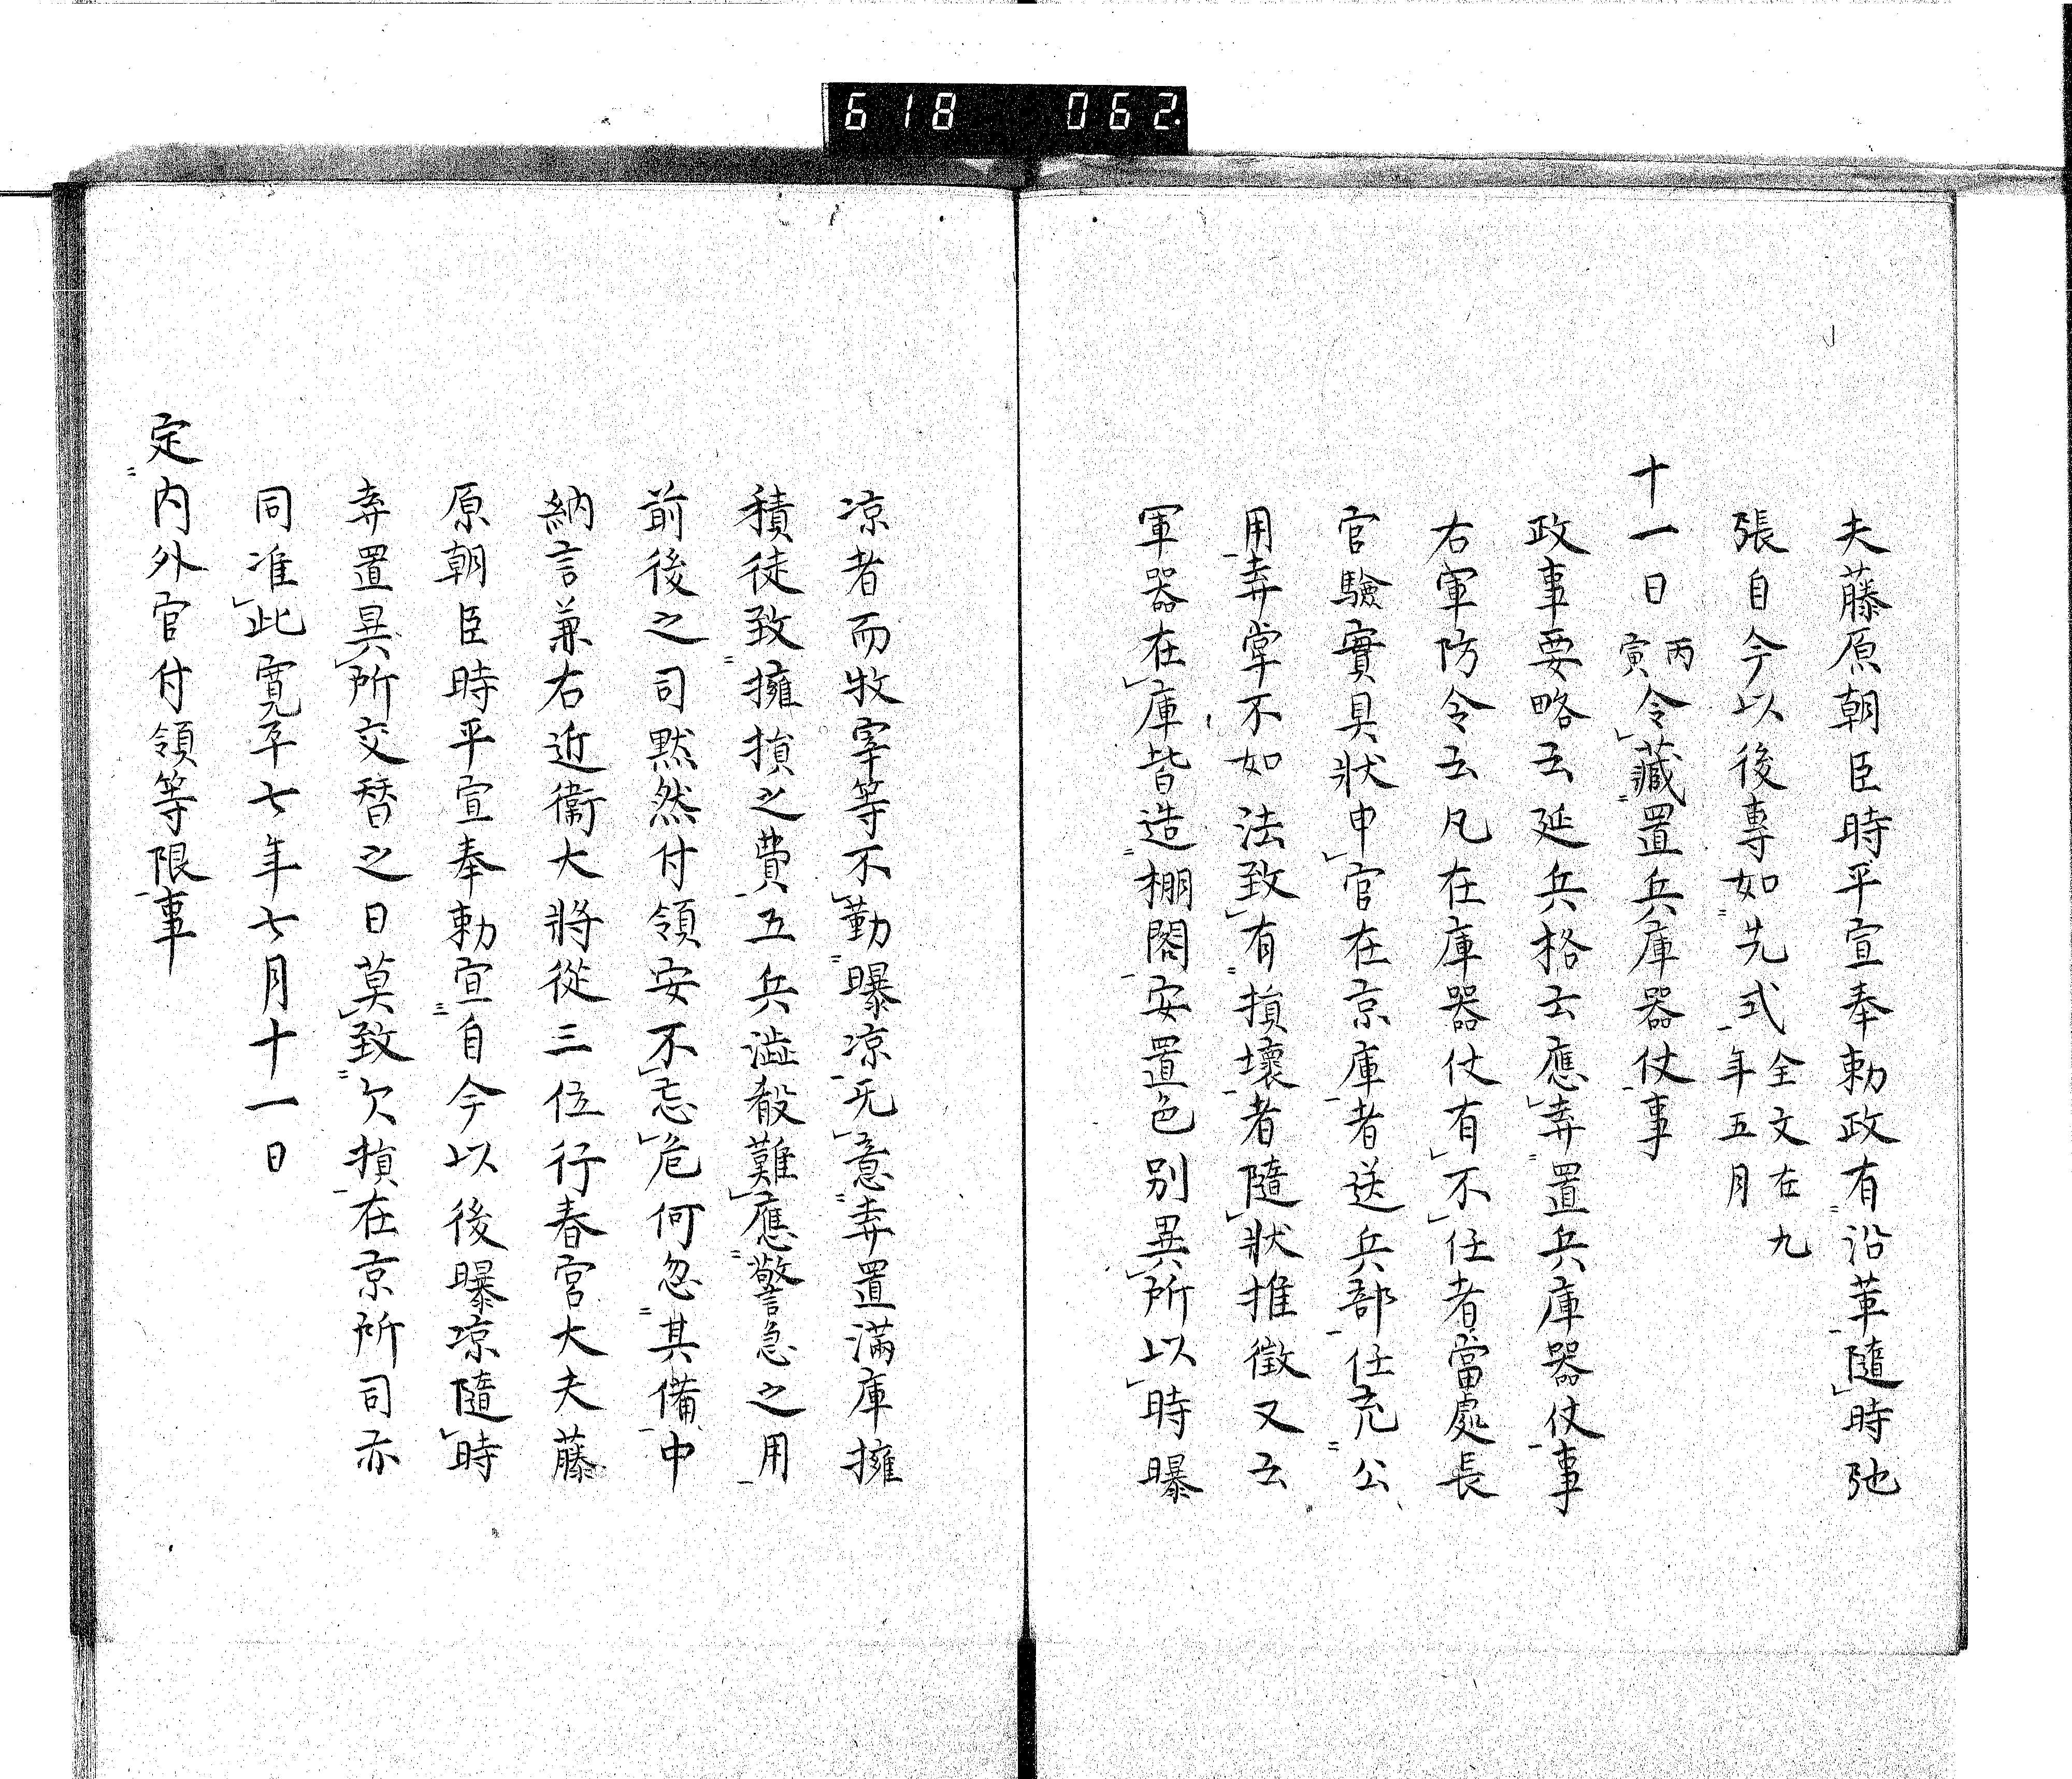 618 062
夫藤原朝臣時平宣奉勅政有沿革隨時弛
張自今以後專如先式全文在九
年五月
十一日丙寅令藏置兵庫器仗事
政事要略云延兵格云應弆置兵庫器仗事
右軍防令云凡在庫器仗有不任者當處長
官驗實具狀申官在京庫者送兵部任充公
用弆掌不如法致有損壞者隨狀推徵又云
軍器在庫皆造棚閣安置色別異所以時曝
凉者而牧宰等不勤曝凉无意弆置滿庫擁
積徒致擁損之費五兵澁殺難應警急之用
前後之司黙然付領安不忘危何忽其備中
納言兼右近衞大將從三位行春宮大夫藤
原朝臣時平宣奉勅宣自今以後曝凉隨時
弆置異所交替之日莫致欠損在京所司亦
同准此寛平七年七月十一日
定内外官付領等限事